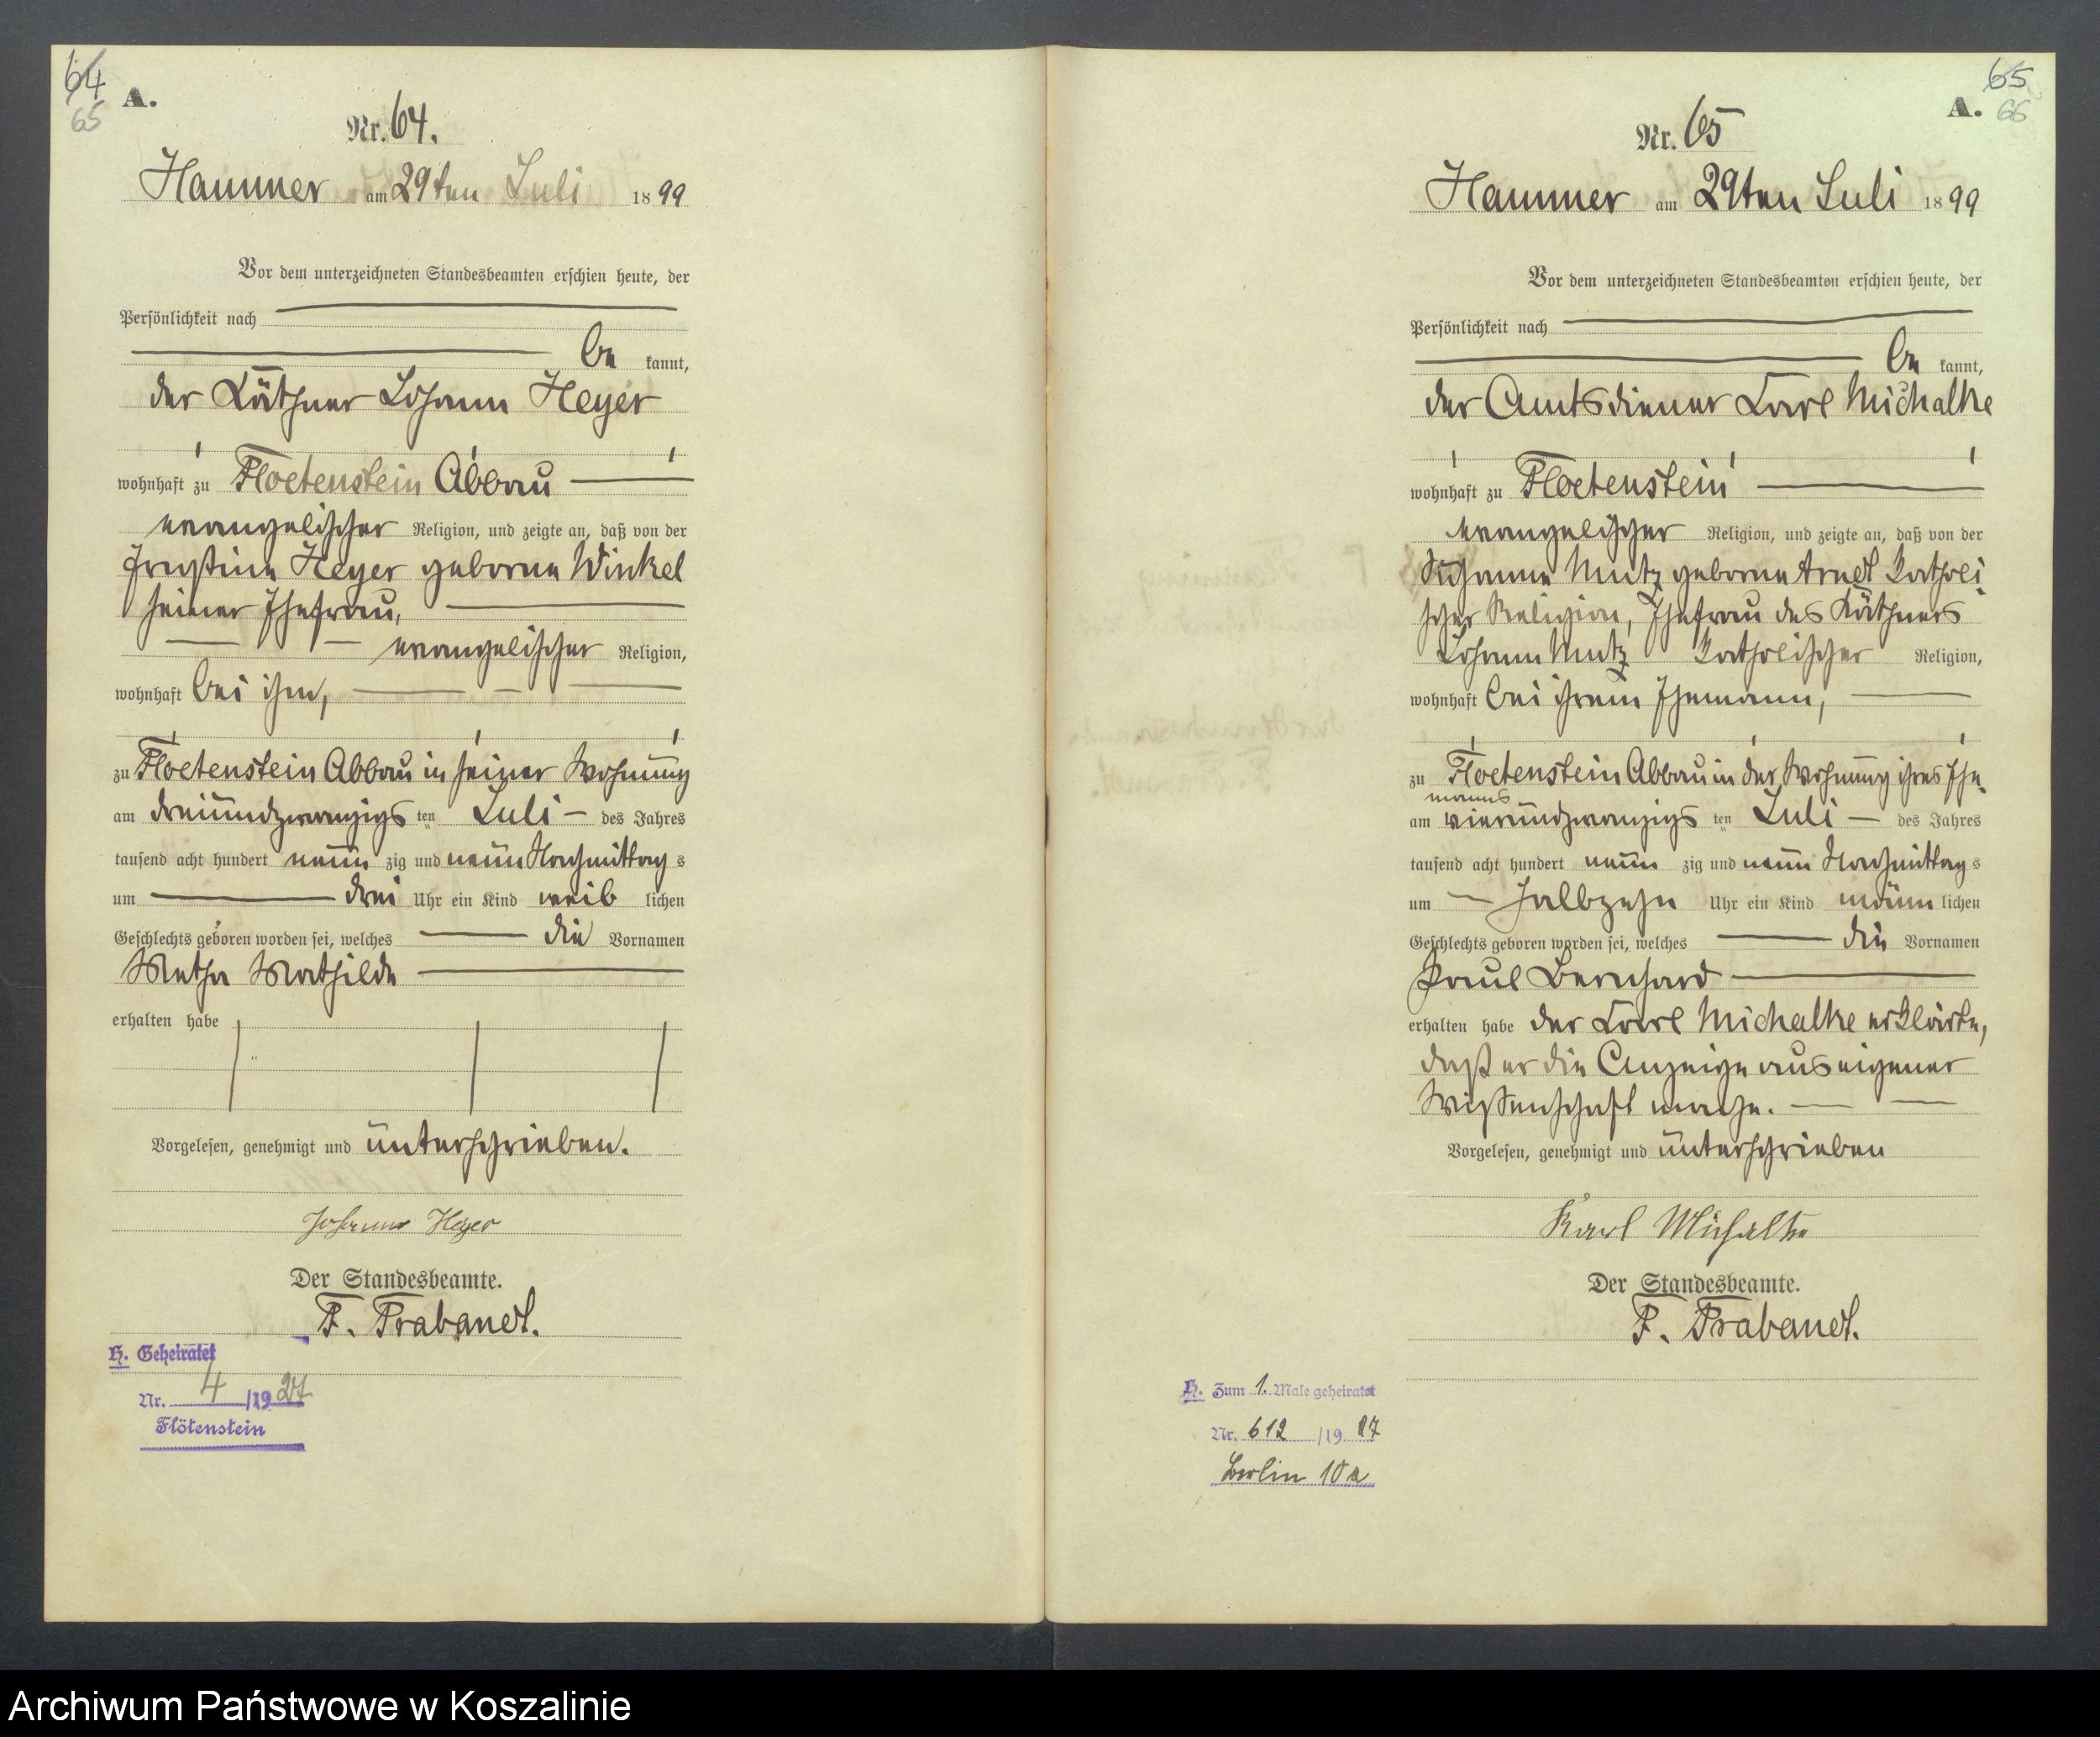 64
65
A.
Nr. 64.
Hammer am 29ten Juli 1899
Vor dem unterzeichneten Standesbeamten erschien heute, der
Persönlichkeit nach
be kannt,
der Käthner Johann Heyer
wohnhaft zu Floetenstein Abbau
evangelischer Religion, und zeigte an, daß von der
Heyer geborne Winkel
seiner Ehefrau,
evangelischer Religion,
wohnhaft bei ihm,
zu Floetenstein Abbau in seiner Wohnung
am dreiundzwanzigs ten Juli des Jahres
tausend acht hundert neun zig und neun Nachmittag s
um drei Uhr ein Kind weib lichen
Geschlechts geboren worden sei, welches die Vornamen
Metha Mathilde
erhalten habe
Vorgelesen, genehmigt und unterschrieben.
Johann Heyer
Der Standesbeamte.
F. Trabandt.
H. Geheiratet
Nr. 4 /1927
Flötenstein
65
66
A.
Nr. 65
Hammer am 29ten Juli 1899
Vor dem unterzeichneten Standesbeamten erschien heute, der
Persönlichkeit nach
be kannt,
der Amtsdiener Carl Michalke
wohnhaft zu Floetenstein
evangelischer Religion, und zeigte an, daß von der
Susanne Mutz geborne Arndt katholi-
scher Religion, Ehefrau des Käthners
Johann Mutz katholischer Religion,
wohnhaft bei ihrem Ehemann,
zu Floetenstein Abbau in der Wohnung ihres Ehe-
manns
am vierundzwanzigs ten Juli des Jahres
tausend acht hundert neun zig und neun Nachmittag s
um halbzehn Uhr ein Kind männ lichen
Geschlechts geboren worden sei, welches die Vornamen
Paul Bernhard
erhalten habe der Carl Michalke erklärte,
daß er die Anzeige aus eigener
Wissenschaft mache.
Vorgelesen, genehmigt und unterschrieben
Karl Michalke
Der Standesbeamte.
F. Trabandt.
H. Zum 1. Male geheiratet
Nr. 612 /1927
Berlin 10a
Archiwum Państwowe w Koszalinie